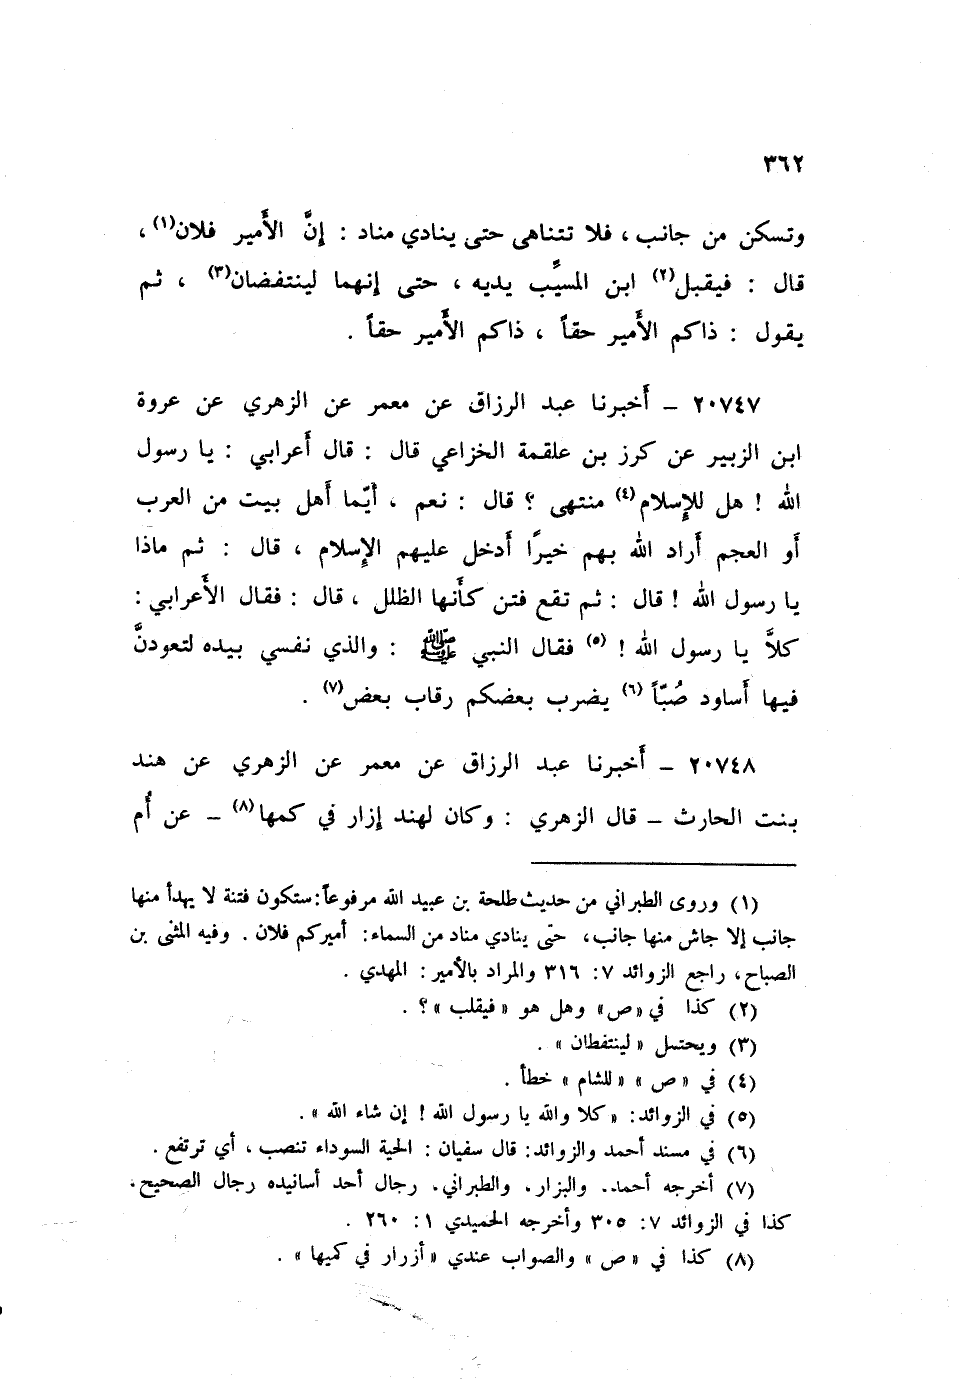 ٣٦٢
وتسكن من جانب ، فلا تتناهى حتى ينادي مناد : إنَّ الأَمير فلان(١) ،
قال : فيقبل(٢) ابن المسيَّب يديه ، حتى إنهما لينتفضان(٣) ، ثم
يقول : ذاكم الأَمير حقاً ، ذاكم الأَمير حقاً .
٢٠٧٤٧ – أَخبرنا عبد الرزاق عن معمر عن الزهري عن عروة
ابن الزبير عن كرز بن علقمة الخزاعي قال : قال أَعرابي : يا رسول
الله ! هل للإِسلام(٤) منتهى ؟ قال : نعم ، أَيّما أَهل بيت من العرب
أَو العجم أَراد الله بهم خيرًا أَدخل عليهم الإِسلام ، قال : ثم ماذا
يا رسول الله ! قال : ثم تقع فتن كأَنها الظلل ، قال : فقال الأَعرابي :
كلاَّ يا رسول الله ! (٥) فقال النبي ﷺ : والذي نفسي بيده لتعودنَّ
فيها أَساود صُبّاً (٦) يضرب بعضكم رقاب بعض(٧) .
٢٠٧٤٨ – أَخبرنا عبد الرزاق عن معمر عن الزهري عن هند
بنت الحارث – قال الزهري : وكان لهند إزار في كمها(٨) – عن أُم
(١) وروى الطبراني من حديث طلحة بن عبيد الله مرفوعاً : ستكون فتنة لا يهدأ منها
جانب إلا جاش منها جانب ، حتى ينادي مناد من السماء : أميركم فلان . وفيه المثنى بن
الصباح ، راجع الزوائد ٧: ٣١٦ والمراد بالأمير : المهدي .
(٢) كذا في «ص» وهل هو «فيقلب» ؟ .
(٣) ويحتمل «لينتفطان» .
(٤) في «ص» «للشام» خطأ .
(٥) في الزوائد : «كلا والله يا رسول الله ! إن شاء الله» .
(٦) في مسند أحمد والزوائد : قال سفيان : الحية السوداء تنصب ، أي ترتفع .
(٧) أخرجه أحمد . والبزار . والطبراني . رجال أحد أسانيده رجال الصحيح ،
كذا في الزوائد ٧: ٣٠٥ وأخرجه الحميدي ١: ٢٦٠ .
(٨) كذا في «ص» والصواب عندي «أزرار في كميها» .